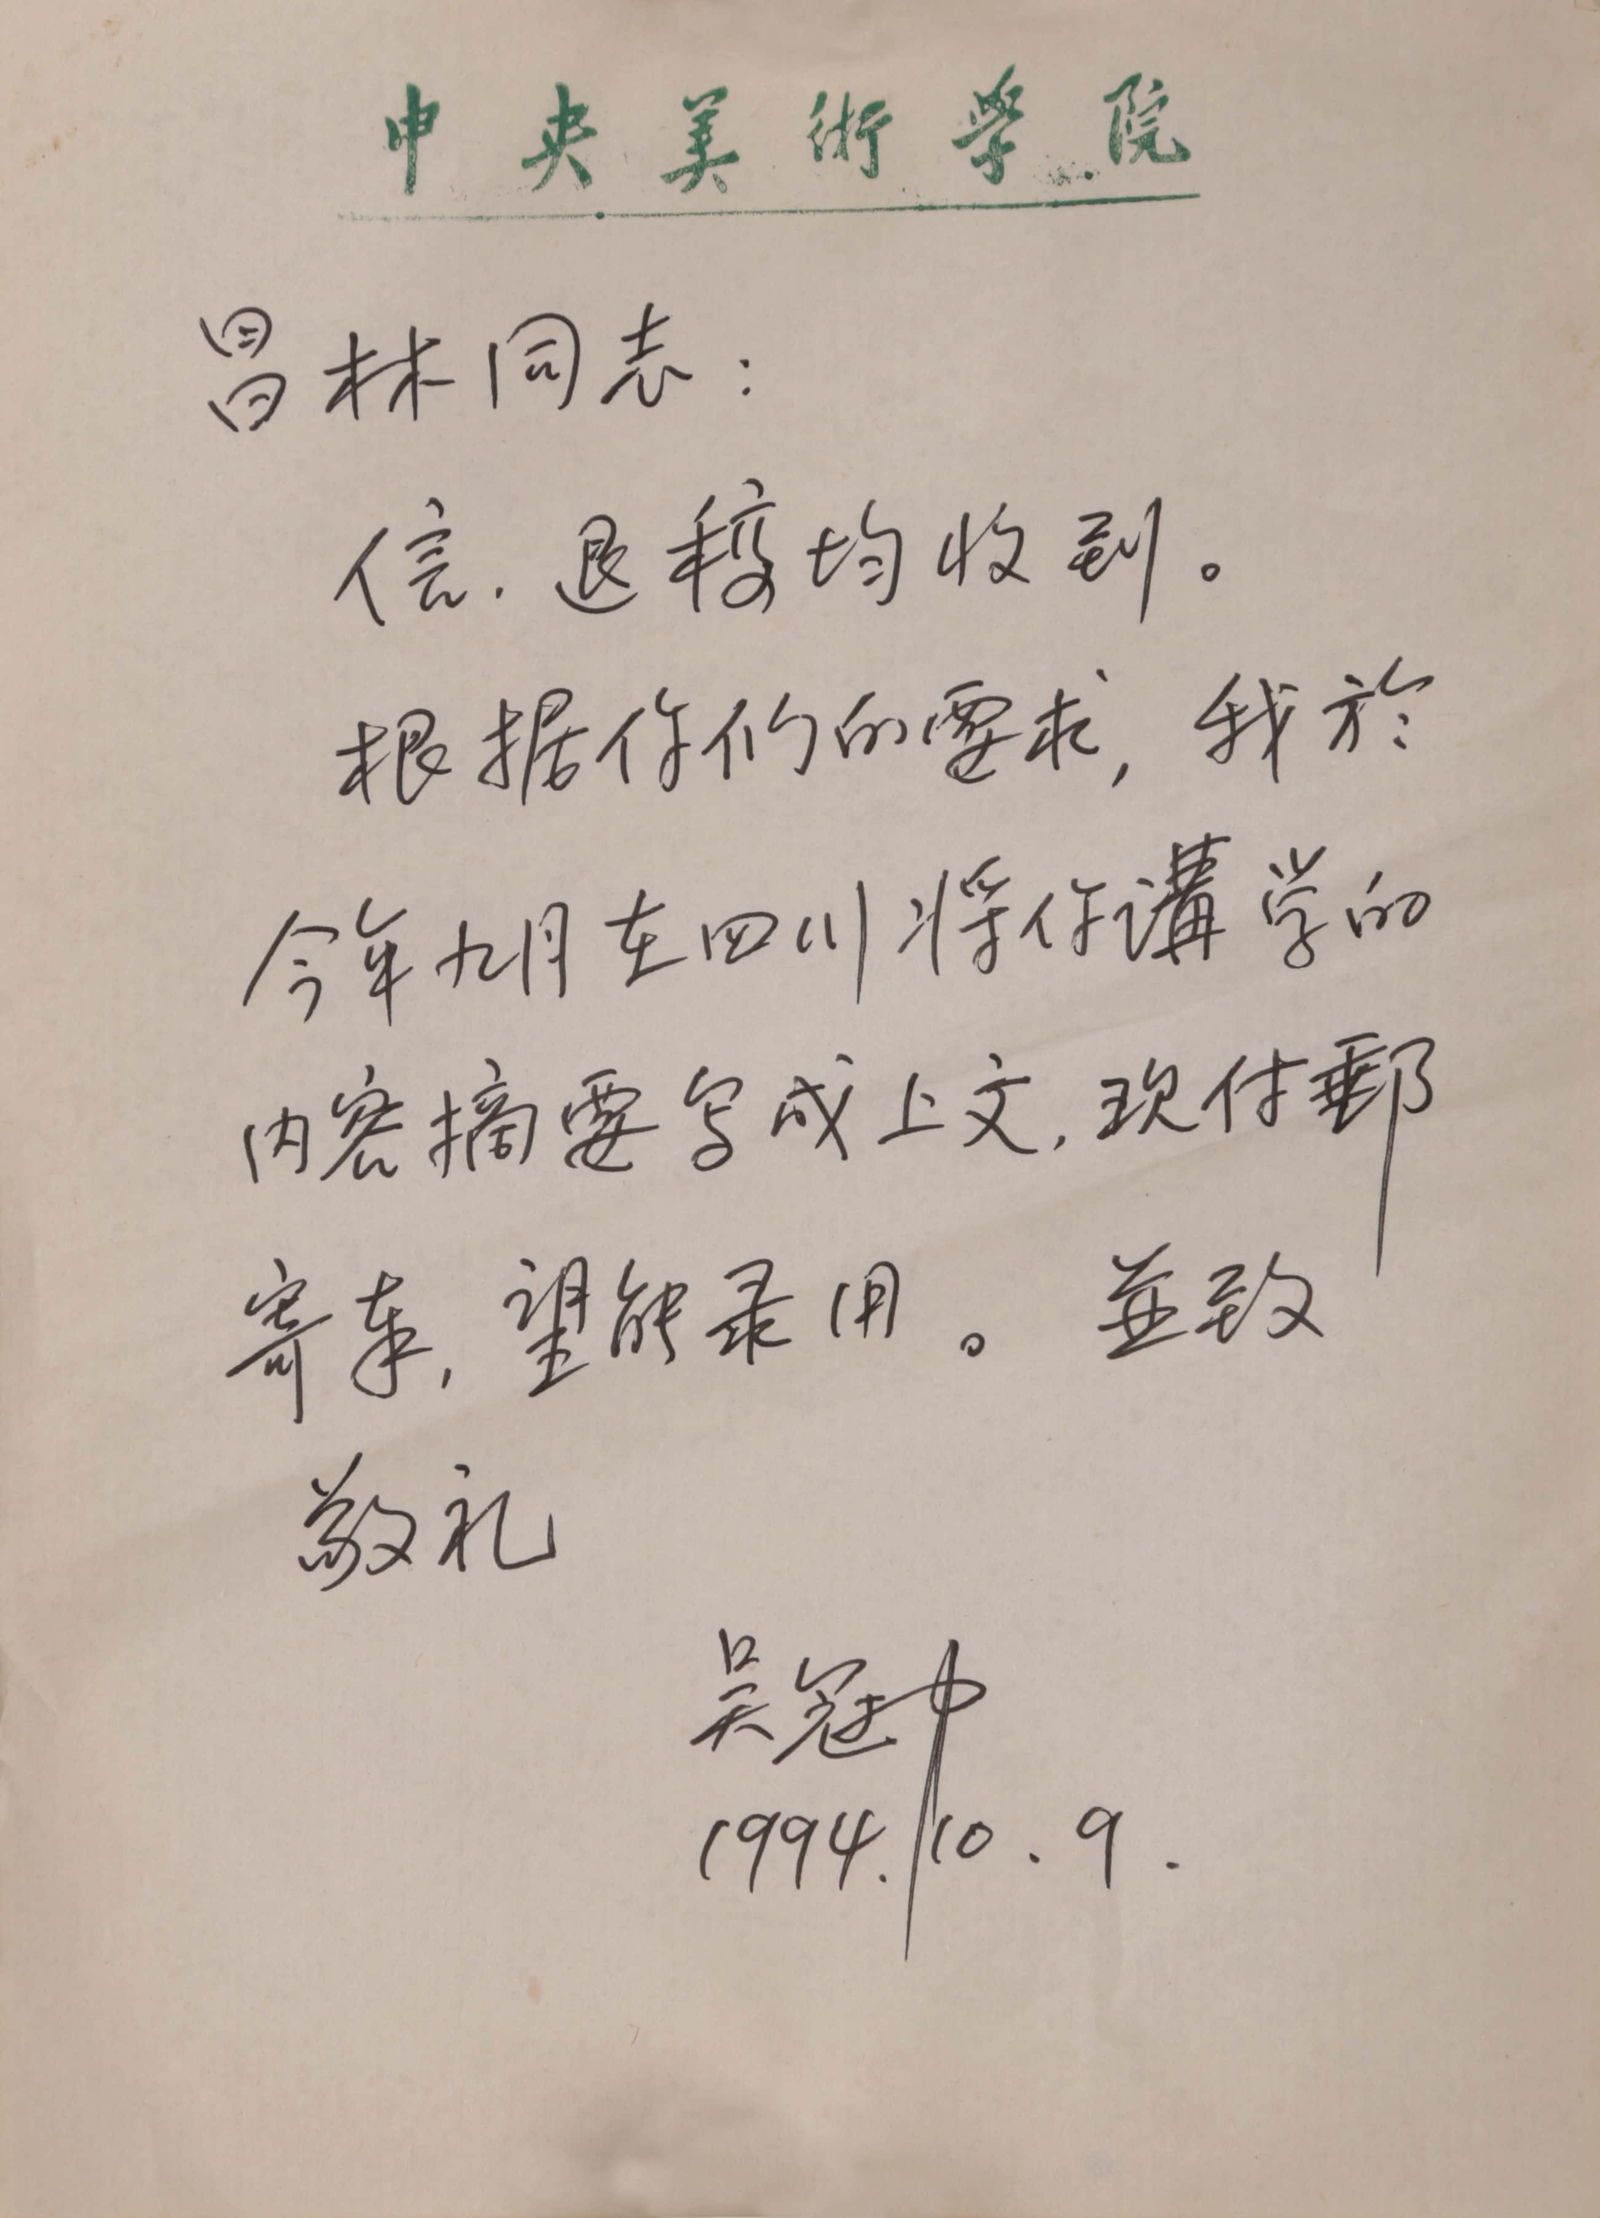 中央美術學院
昌林同志：
信、退稿均收到。
根据你们的要求，我於
今年九月在四川将作講学的
内容摘要写成上文，现付郵
寄奉，望能录用。並致
敬礼
吴冠中
1994.10.9.